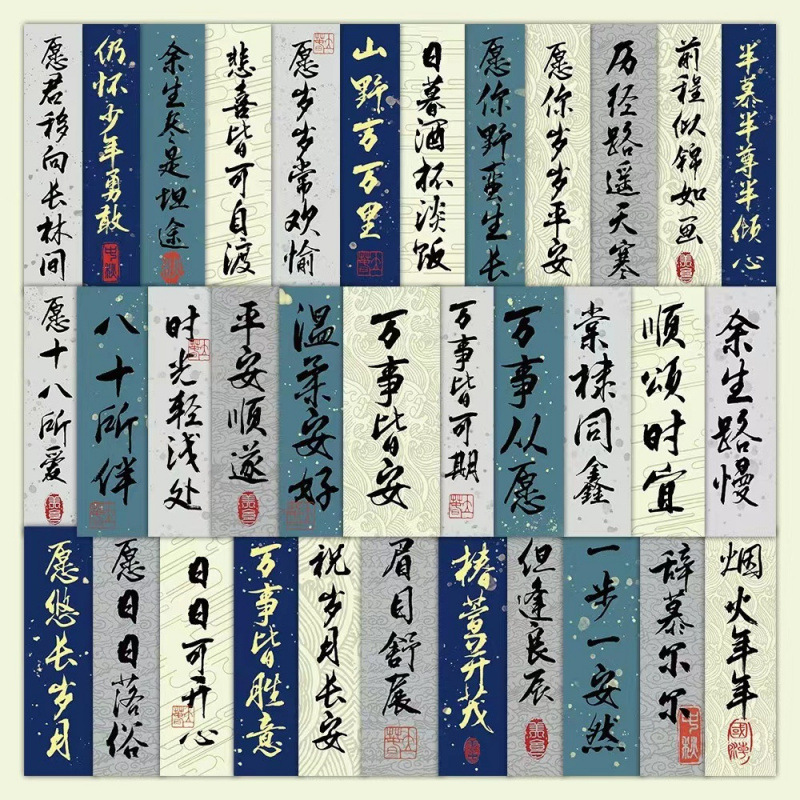 愿君移向长林间
仍怀少年勇敢
余生尽是坦途
悲喜皆可自渡
愿岁岁常欢愉
山野万万里
日暮酒杯淡饭
愿你野蛮生长
愿你岁岁平安
历经路遥天寒
前程似锦如画
半慕半尊半倾心
愿十八所爱
八十所伴
时光轻浅处
平安顺遂
温柔安好
万事皆安
万事皆可期
万事从愿
棠棣同鑫
顺颂时宜
余生路慢
愿悠长岁月
愿日日落俗
日日可开心
万事皆胜意
祝岁月长安
眉目舒展
椿萱并茂
但逢良辰
一步一安然
辞慕尔尔
烟火年年